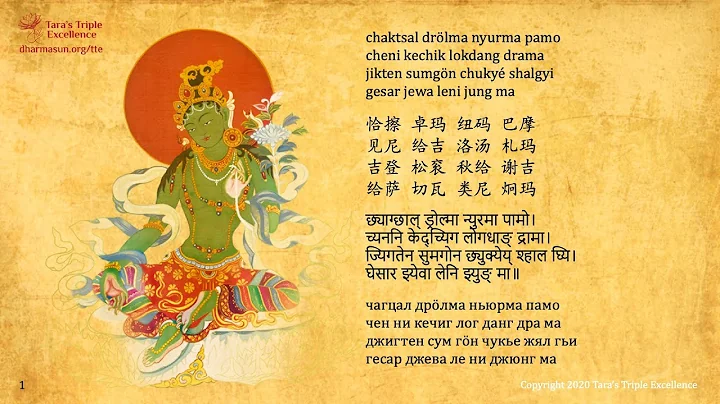 Tara's Triple
Excellence
dharmasun.org/tte
chaktsal drölma nyurma pamo
cheni kechik lokdang drama
jikten sumgön chukyé shalgyi
gesar jewa leni jung ma
恰擦 卓玛 纽码 巴摩
见尼 给吉 洛汤 札玛
吉登 松衮 秋给 谢吉
给萨 切瓦 类尼 炯玛
छ्याग्छाल् ड्रोल्मा न्युरमा पामो।
च्यननि केद्च्यिग लोगधाङ् द्रामा।
ज्यिगतेन सुमगोन छ्युक्येय् श्हाल घ्यि।
घेसार झ्येवा लेनि झ्युङ् मा॥
чагцал дрöлма ньюрма памо
чен ни кечиг лог данг дра ма
джигтен сум гöн чукье жял гьи
гесар джева ле ни джюнг ма
1
Copyright 2020 Tara's Triple Excellence